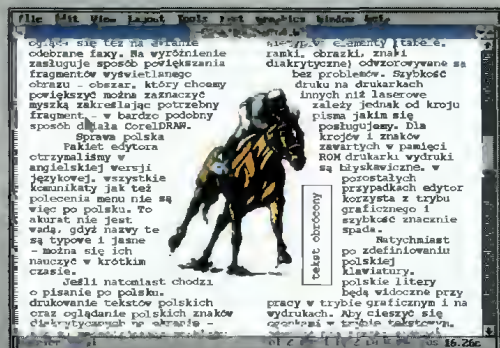 File Edit View Layout Tools Font Graphics Window Help
się też na ekranie
odebrane faxy. Na wyróżnienie
zasługuje sposób powiększania
fragmentów wyświetlanego
obrazu - obszar, który chcemy
powiększyć można zaznaczyć
myszką zakreślając potrzebny
fragment - w bardzo podobny
sposób działa CorelDRAW.
Sprawa polska
Pakiet edytora
otrzymaliśmy w
angielskiej wersji
językowej, wszystkie
komunikaty jak też
polecenia menu nie są
więc po polsku. To
akurat nie jest
wadą, gdyż nazwy te
są typowe i jasne
- można się ich
nauczyć w krótkim
czasie.
Jeśli natomiast chodzi
o pisanie po polsku,
drukowanie tekstów polskich
oraz oglądanie polskich znaków
diakrytycznych na ekranie -
elementy
ramki, obrazki, znaki
diakrytyczne) odwzorowywane są
bez problemów. Szybkość
druku na drukarkach
innych niż laserowe
zależy jednak od kroju
pisma jakim się
posługujemy. Dla
krojów i znaków
zawartych w pamięci
ROM drukarki wydruki
są błyskawiczne, w
pozostałych
przypadkach edytor
korzysta z trybu
graficznego i
szybkość znacznie
spada.
Natychmiast
po zdefiniowaniu
polskiej
klawiatury,
polskie litery
będą widoczne przy
pracy w trybie graficznym i na
wydrukach. Aby cieszyć się
w trybie tekstowym,
tekst obrócony
16.26c